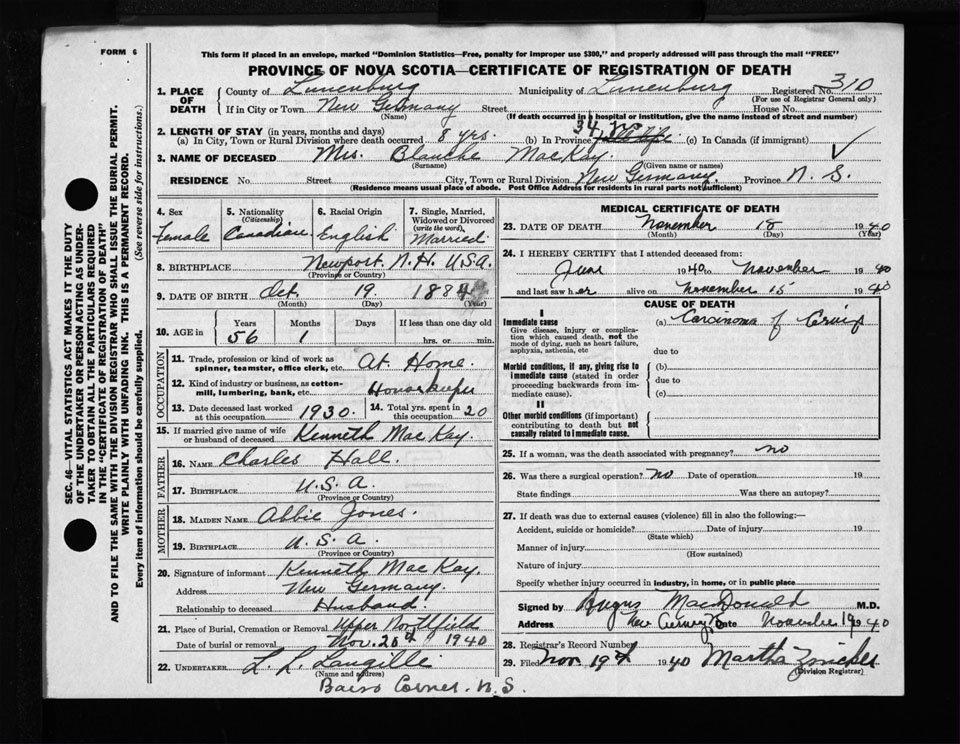 FORM 6
This form if placed in an envelope, marked "Dominion Statistics—Free, penalty for improper use $300," and properly addressed will pass through the mail "FREE"
PROVINCE OF NOVA SCOTIA—CERTIFICATE OF REGISTRATION OF DEATH
SEC. 46—VITAL STATISTICS ACT MAKES IT THE DUTY
OF THE UNDERTAKER OR PERSON ACTING AS UNDER-
TAKER TO OBTAIN ALL THE PARTICULARS REQUIRED
IN THE "CERTIFICATE OF REGISTRATION OF DEATH"
AND TO FILE THE SAME WITH THE DIVISION REGISTRAR WHO SHALL ISSUE THE BURIAL PERMIT.
WRITE PLAINLY WITH UNFADING INK. THIS IS A PERMANENT RECORD.
Every item of information should be carefully supplied. (See reverse side for instructions.)
1. PLACE OF DEATH County of Lunenburg Municipality of Lunenburg Registered No. 310
(For use of Registrar General only)
If in City or Town New Germany Street House No.
(Name) (If death occurred in a hospital or institution, give the name instead of street and number)
2. LENGTH OF STAY (in years, months and days)
(a) In City, Town or Rural Division where death occurred 8 yrs. (b) In Province 34 yrs (c) In Canada (if immigrant)
3. NAME OF DECEASED Mrs. Blanche MacKay.
(Surname) (Given name or names)
RESIDENCE No. Street City, Town or Rural Division New Germany. Province N. S.
(Residence means usual place of abode. Post Office Address for residents in rural parts not sufficient)
4. Sex Female
5. Nationality (Citizenship) Canadian
6. Racial Origin English
7. Single, Married, Widowed or Divorced (write the word) Married
8. BIRTHPLACE Newport. N.H. U.S.A.
(Province or Country)
9. DATE OF BIRTH Oct. 19 1884
(Month) (Day) (Year)
10. AGE in Years 56 Months 1 Days If less than one day old hrs. or min.
OCCUPATION
11. Trade, profession or kind of work as spinner, teamster, office clerk, etc. At Home.
12. Kind of industry or business, as cotton-mill, lumbering, bank, etc. Housekeeper
13. Date deceased last worked at this occupation 1930.
14. Total yrs. spent in this occupation 20
15. If married give name of wife or husband of deceased Kenneth MacKay.
FATHER
16. NAME Charles Hall.
17. BIRTHPLACE U.S.A.
(Province or Country)
MOTHER
18. MAIDEN NAME Abbie Jones.
19. BIRTHPLACE U.S.A.
(Province or Country)
20. Signature of informant Kenneth MacKay.
Address New Germany.
Relationship to deceased Husband.
21. Place of Burial, Cremation or Removal Upper Northfield
Date of burial or removal Nov. 20th 1940
22. UNDERTAKER L. L. Langille
(Name and address)
Barss Corner. N.S.
MEDICAL CERTIFICATE OF DEATH
23. DATE OF DEATH November 18 1940
(Month) (Day) (Year)
24. I HEREBY CERTIFY that I attended deceased from:
June 1940 to November 1940
and last saw her alive on November 15 1940
CAUSE OF DEATH
I
Immediate cause
Give disease, injury or complication which caused death, not the mode of dying, such as heart failure, asphyxia, asthenia, etc
(a) Carcinoma of Cervix
due to
Morbid conditions, if any, giving rise to immediate cause (stated in order proceeding backwards from immediate cause).
(b)
due to
(c)
II
Other morbid conditions (if important) contributing to death but not causally related to immediate cause.
25. If a woman, was the death associated with pregnancy? no
26. Was there a surgical operation? No Date of operation 19
State findings Was there an autopsy?
27. If death was due to external causes (violence) fill in also the following:—
Accident, suicide or homicide? Date of injury 19
(State which)
Manner of injury
(How sustained)
Nature of injury
Specify whether injury occurred in industry, in home, or in public place
Signed by Angus MacDonald M.D.
Address New Germany Date November 19 1940
28. Registrar's Record Number
29. Filed Nov. 19th 1940 Martha Zwicker
(Division Registrar)